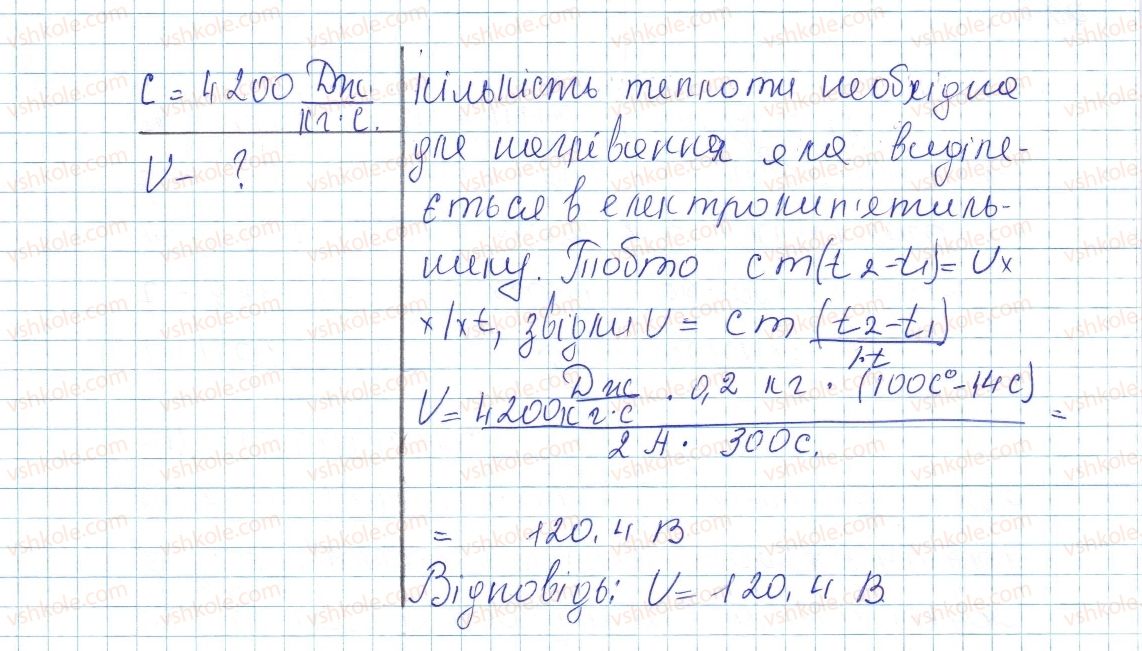 c = 4200 Дж/кг·с.
U - ?
Кількість теплоти необхідна
для нагрівання яка виділя-
ється в електрокип'ятиль-
нику. Тобто cm(t2-t1)= U×
×I×t, звідки U = cm (t2-t1)/I·t
U= 4200 Дж/кг·с · 0,2 кг · (100С°-14С) / 2 А · 300с. =
= 120.4 В
Відповідь: U= 120.4 В
vshkole.com